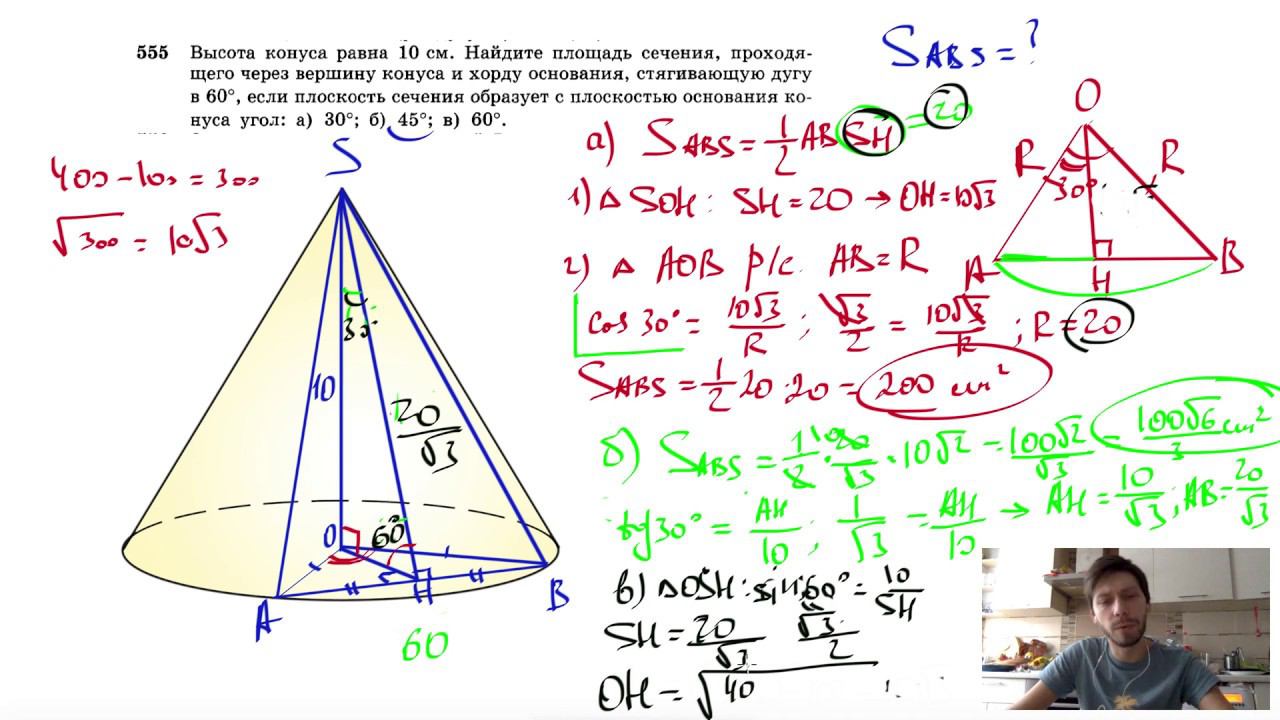 555 Высота конуса равна 10 см. Найдите площадь сечения, проходя-
щего через вершину конуса и хорду основания, стягивающую дугу
в 60°, если плоскость сечения образует с плоскостью основания ко-
нуса угол: а) 30°; б) 45°; в) 60°.
S_ABS = ?
400 - 100 = 300
√300 = 10√3
S
30°
10
20/√3
O
60°
A
H
B
60
а) S_ABS = 1/2 AB SH = 20
1) △ SOH: SH = 20 → OH = 10√3
2) △ AOB р/с. AB = R
cos 30° = 10√3/R ; √3/2 = 10√3/R ; R = 20
S_ABS = 1/2 20 · 20 = 200 см²
O
R
R
30°
A
H
B
б) S_ABS = 1/2 · 20/√3 · 10√2 = 100√2/√3 = 100√6/3 см²
tg 30° = AH/10 ; 1/√3 = AH/10 → AH = 10/√3 ; AB = 20/√3
в) △OSH: sin 60° = 10/SH
SH = 20/√3 √3/2
OH = √40